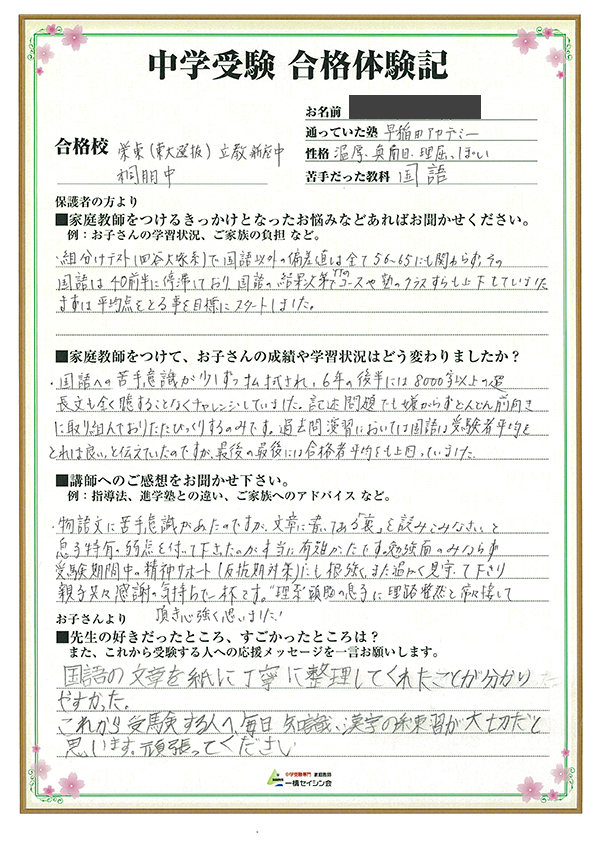 中学受験 合格体験記
お名前
合格校 栄東(東大選抜) 立教新座中
桐朋中
通っていた塾 早稲田アカデミー
性格 温厚、真面目、理屈っぽい
苦手だった教科 国語
保護者の方より
■家庭教師をつけるきっかけとなったお悩みなどあればお聞かせください。
例:お子さんの学習状況、ご家族の負担 など。
・組分けテスト(四谷大塚系)で国語以外の偏差値は全て56~65にも関わらず、
国語は40前半に停滞しており、国語の結果次第でコースや塾のクラスすらも上下していました
まずは平均点をとる事を目標にスタートしました。
■家庭教師をつけて、お子さんの成績や学習状況はどう変わりましたか?
・国語への苦手意識が少しずつ払拭され、6年の後半には8000字以上の超
長文も全く臆することなくチャレンジしていました。記述問題でも嫌がらずどんどん前向き
に取り組んでおりただただびっくりするのみです。過去問演習においては国語は受験者平均を
とれば良い、と伝えていたのですが、最後の最後には合格者平均をも上回っていました。
■講師へのご感想をお聞かせ下さい。
例:指導法、進学塾との違い、ご家族へのアドバイス など。
・物語文に苦手意識があったのですが、文章に書いてある「裏」を読みこみなさい、と
息子特有の弱点を付いて下さったのが本当に有難かったです。勉強面のみならず
受験期間中の精神サポート(反抗期対策)にも根強く、また温かく見守って下さり
親子共々感謝の気持ちで一杯です。"理系"頭脳の息子に理路整然と応接して
頂き心強く思いました!
お子さんより
■先生の好きだったところ、すごかったところは?
また、これから受験する人への応援メッセージを一言お願いします。
国語の文章を紙に丁寧に整理してくれたことが分かり
やすかった。
これから受験する人へ、毎日 知識、漢字の練習が大切だと
思います。頑張ってください
中学受験専門 家庭教師
一橋セイシン会